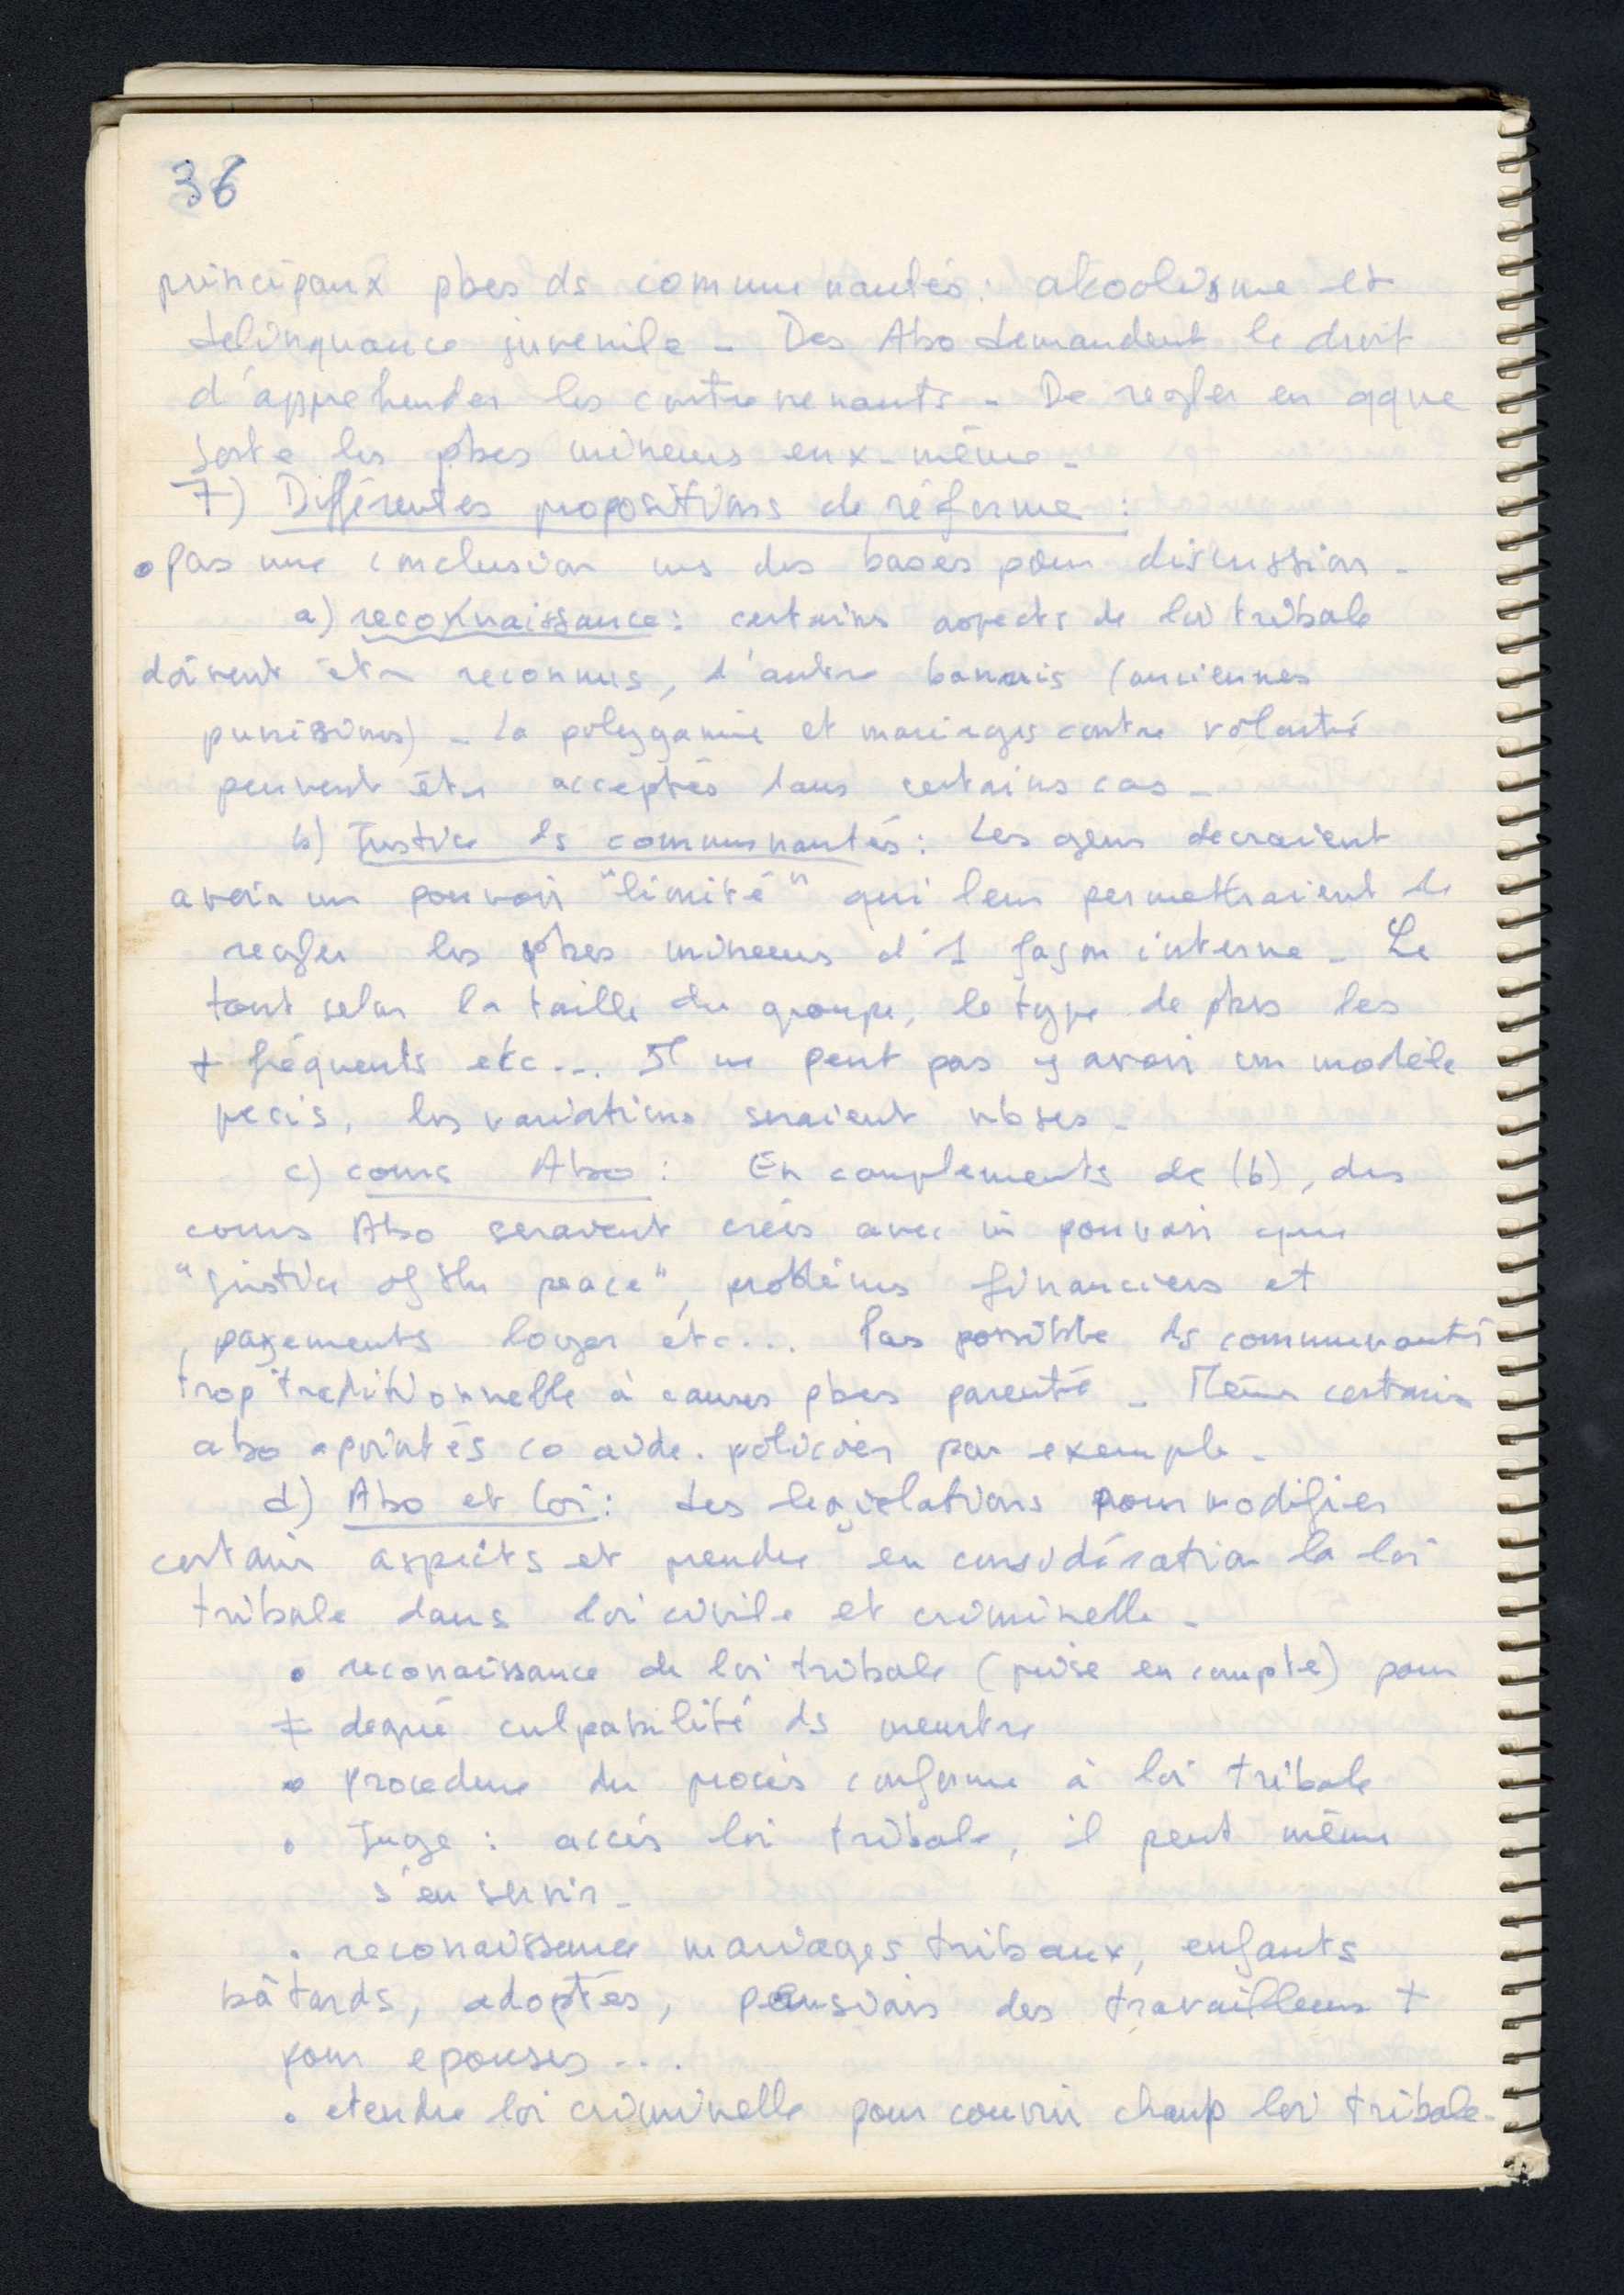 36
principaux pbes ds communautés : alcoolisme et
delinquance juvenile - Des Abo demandent le droit
d'apprehender les contrevenants - De regler en qque
sorte les pbes mineurs eux-même -
7) Différentes propositions de réforme :
• pas une conclusion ms des bases pour discussion -
a) reconnaissance : certains aspects de loi tribale
doivent être reconnus, d'autre bannis (anciennes
punisions) - La polygamie et mariages contre volonté
peuvent être acceptés dans certains cas -
b) Justice ds communautés : Les gens devraient
avoir un pouvoir "limité" qui leur permettraient de
regler les pbes mineurs d'1 façon interne - Le
tout selon la taille du groupe, le type de pbs les
+ fréquents etc... Il ne peut pas y avoir un modèle
precis, les variations seraient nbses -
c) cours Abo : En complements de (b), des
cours Abo seraient créés avec m̂ pouvoir que
"justice of the peace", problèmes financiers et
, payements loyer etc... Pas possible ds communautés
trop traditionnelle à causes pbes parenté - Même certains
abo apointés co aide-policier par exemple -
d) Abo et loi : des legislations pour modifier
certain aspects et prendre en considération la loi
tribale dans loi civile et criminelle -
• reconaissance de loi tribale (prise en compte) pour
≠ degré culpabilité ds meurtre
• procedure du procès conforme à loi tribale
• Juge : accès loi tribale, il peut même
s'en servir -
• reconaissance mariages tribaux, enfants
bâtards, adoptés, pensions des travailleurs +
pour epouses ...
• etendre loi criminelle pour couvrir champ loi tribale -